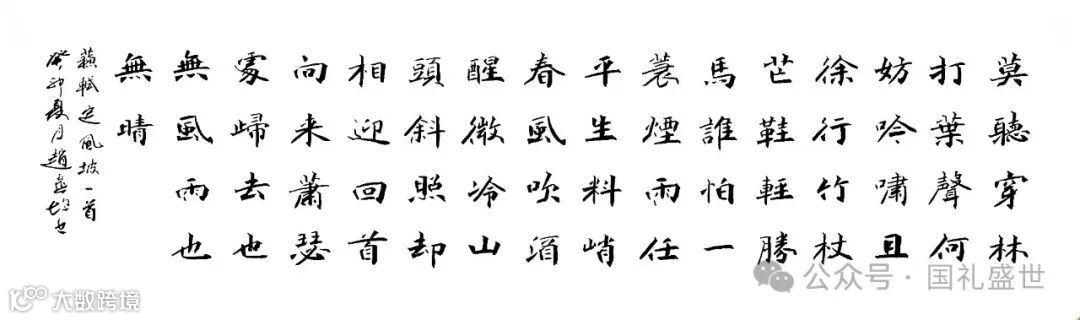 莫聽穿林
打葉聲何
妨吟嘯且
徐行竹杖
芒鞋輕勝
馬誰怕一
蓑煙雨任
平生料峭
春風吹酒
醒微冷山
頭斜照却
相迎回首
向来蕭瑟
處歸去也
無風雨也
無晴
蘇軾定風坡一首
癸卯夏月趙
公众号·国礼盛世
大数跨境